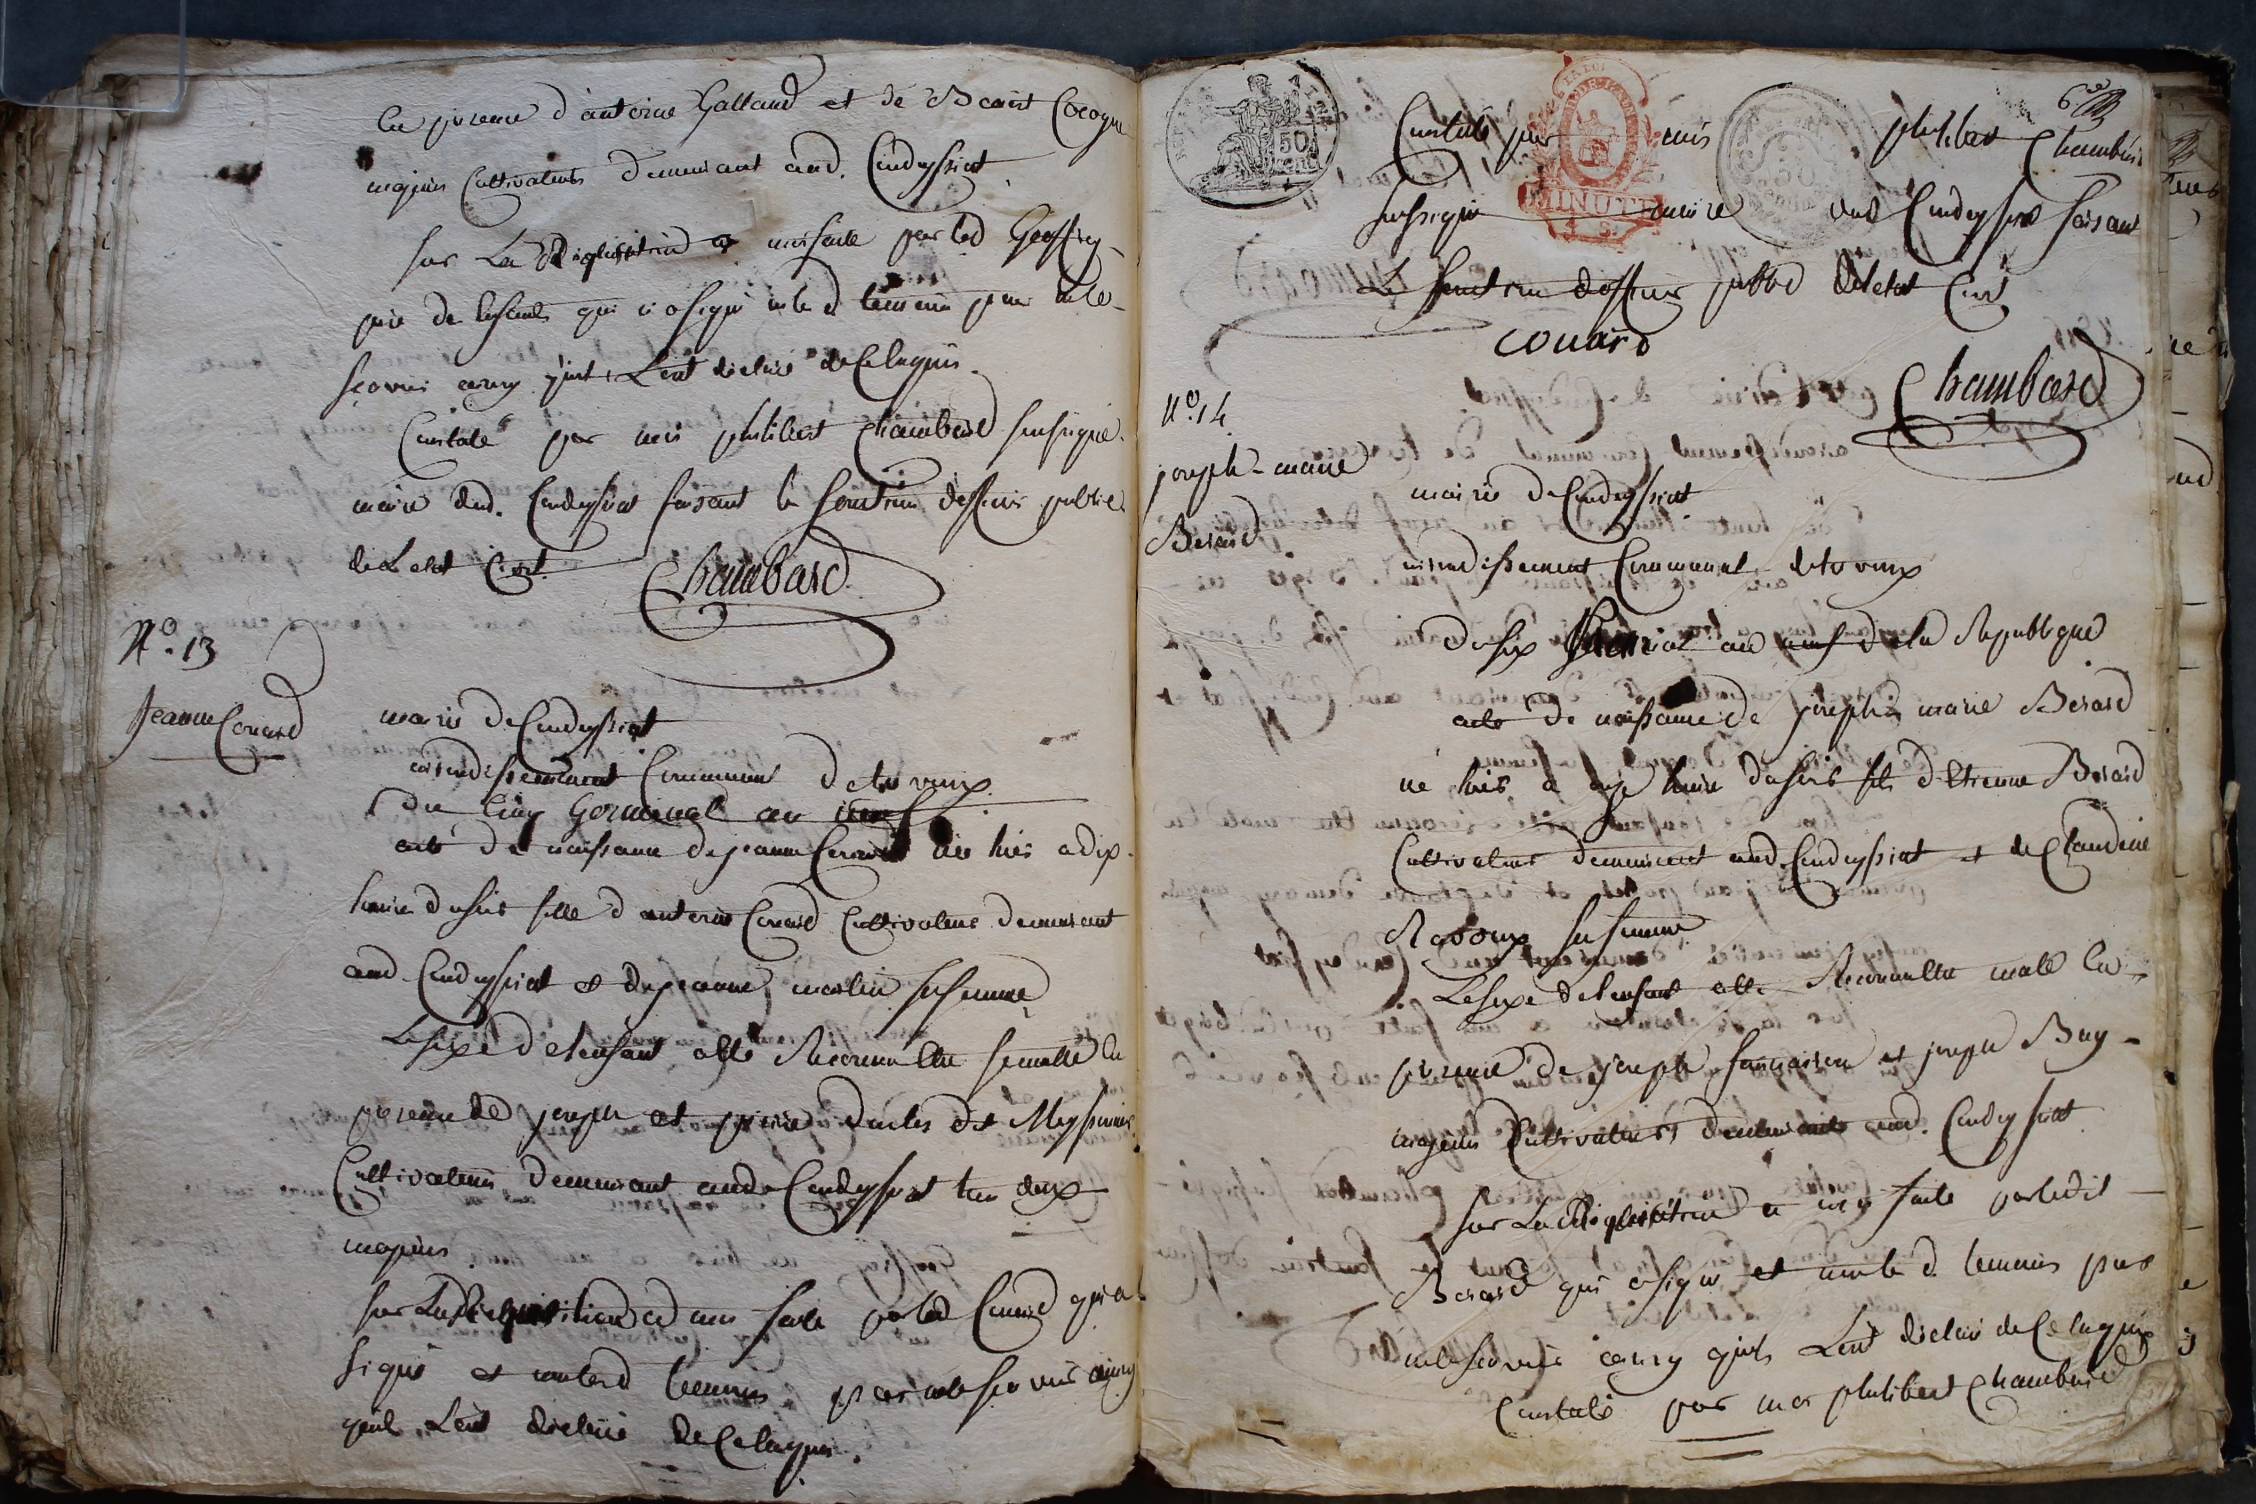 En presence d'antoine Galland et de Benoit Cocogne
majeurs Cultivateurs demeurant aud. Cindyssiat
sur La Requisition a moi faite par led Geoffray
pere de L'enfant qui a signé et led temoins pour ne le
scavoir ainsy quil L'ont declaré de Ce Enquis
Constaté par moi philibert Chambard soussigné
maire dud. Condeyssiat faisant la fonction dofficier public
de L'etat Civil Chambard
N.° 13
Jeanne Couard
mairie de Condeyssiat
arondissement Communal de trevoux
du Cinq Germinal an neuf
acte de naissance de jeanne Couard née hier a dix
heure du soir fille d'antoine Couard Cultivateur demeurant
aud Condeyssiat et de jeanne martin sa femme
Le sexe de l'enfant a été Reconnu Etre femelle En
presence de joseph et pierre
Cultivateurs demeurant aud Condeyssiat tous deux
majeurs
sur La Requisition a moi faite par led Couard qui a
signé et non led temoins pour ne le scavoir ainsy
quil L'ont declaré de Ce Enquis.
50
MINUTE
6e
Constaté par moi philibert Chambard
soussigné maire dud Condeyssiat faisant
La fonction dofficier public de L'etat Civil
COUARD
Chambard
N.° 14
joseph-marie
Berard
mairie de Condeyssiat
arondissement Communal de trevoux
du six Germinal an neuf de La Republique
acte de naissance de joseph marie Berard
né hier a onze heure du soir fils d'Etienne Berard
Cultivateur demeurant aud Condeyssiat et de Claudine
Ravoux sa femme
Le sexe de l'enfant a été Reconnu Etre male En
presence de joseph et joseph Buy
majeurs Cultivateurs demeurants aud. Condeyssiat
sur La Requisition a moy faite par ledit
Berard qui a signé et non le d. temoins pour
ne le scavoir ainsy quils L'ont declaré de Ce Enquis
Constaté par moi philibert Chambard